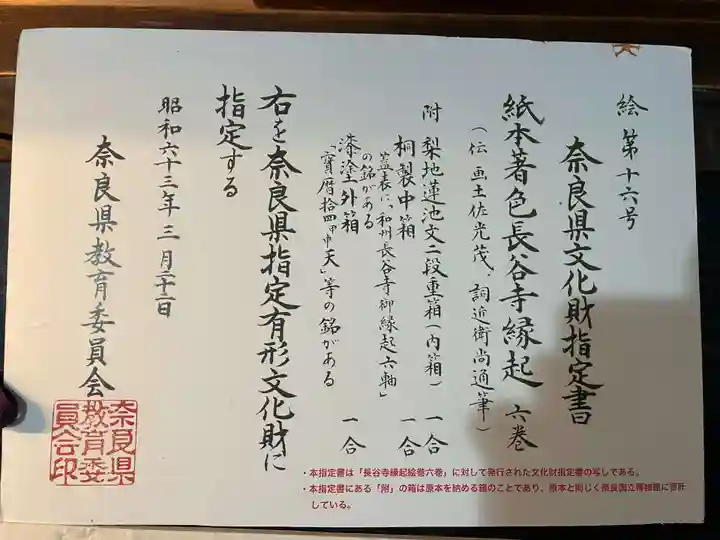 絵第十六号
奈良県文化財指定書
紙本著色長谷寺縁起 六巻
(伝 画土佐光茂、詞近衛尚通筆)
附 梨地蓮池文二段重箱(内箱) 一合
桐製中箱 一合
蓋表に「和州長谷寺御縁起六軸」
の銘がある
漆塗外箱 一合
「寳暦拾四甲申天」等の銘がある
右を奈良県指定有形文化財に
指定する
昭和六十三年三月二十二日
奈良県教育委員会
奈良県
教育委
員会印
・本指定書は「長谷寺縁起絵巻六巻」に対して発行された文化財指定書の写しである。
・本指定書にある「附」の箱は原本を納める箱のことであり、原本と同じく奈良国立博物館に寄託
している。